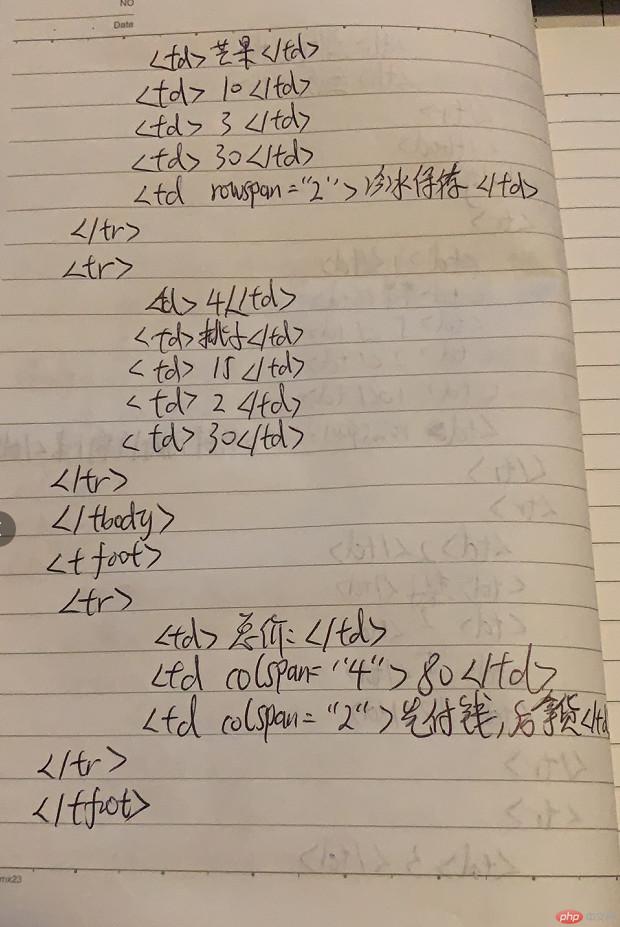 NO
Date
<td> 芒果 </td>
<td> 10 </td>
<td> 3 </td>
<td> 30 </td>
<td rowspan="2"> 冷冰保存 </td>
</tr>
<tr>
<td> 4 </td>
<td> 桃子 </td>
<td> 15 </td>
<td> 2 </td>
<td> 30 </td>
</tr>
</tbody>
<tfoot>
<tr>
<td> 总价: </td>
<td colspan="4"> 80 </td>
<td colspan="2"> 先付钱,后拿货 </td
</tr>
</tfoot>
mx23
php 中文网